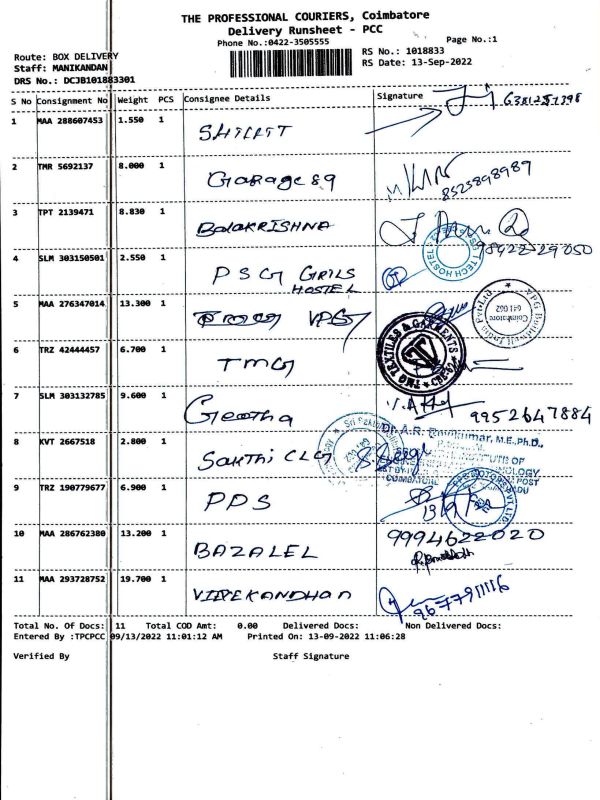 THE PROFESSIONAL COURIERS, Coimbatore
Delivery Runsheet - PCC
Phone No.:0422-3505555
Page No.:1
Route: BOX DELIVERY
RS No.: 1018833
Staff: MANIKANDAN
RS Date: 13-Sep-2022
DRS No.: DCJB101883301
S No Consignment No Weight PCS Consignee Details Signature
1 MAA 288607453 1.550 1
2 TMR 5692137 8.000 1 Garage 89 8525898989
3 TPT 2139471 8.830 1 BalaKRISHNA
4 SLM 303150501 2.550 1 PSG GRILS
HOSTEL
5 MAA 276347014 13.300 1 VPG
6 TRZ 42444457 6.700 1 TMG
TMG TEXTILES & GARMENTS
7 SLM 303132785 9.600 1 Geetha 9952647884
8 KVT 2667518 2.800 1 Sakthi CLG
9 TRZ 190779677 6.900 1 PPS
10 MAA 286762380 13.200 1 BAZALEL 9994622020
11 MAA 293728752 19.700 1 VIVEKANDHAN
Total No. Of Docs: 11 Total COD Amt: 0.00 Delivered Docs: Non Delivered Docs:
Entered By :TPCPCC 09/13/2022 11:01:12 AM Printed On: 13-09-2022 11:06:28
Verified By Staff Signature